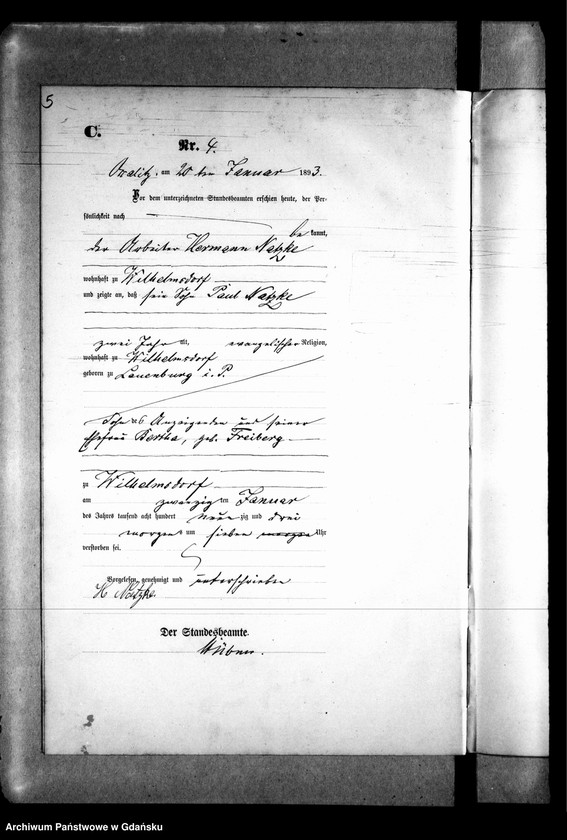 5
C.
Nr. 4.
am 20 ten Januar 1893.
Vor dem unterzeichneten Standesbeamten erschien heute, der Per-
sönlichkeit nach
be kannt,
der Arbeiter Hermann Natzke
wohnhaft zu Wilhelmsdorf
und zeigte an, daß sein Sohn Paul Natzke
zwei Jahr alt, evangelischer Religion,
wohnhaft zu Wilhelmsdorf
geboren zu Lauenburg i. P.
Sohn des Anzeigenden und seiner
Ehefrau Bertha, geb. Freiberg
zu Wilhelmsdorf
am zwanzig ten Januar
des Jahrs tausend acht hundert neun zig und drei
morgens um sieben Uhr
verstorben sei.
Vorgelesen, genehmigt und unterschrieben
H Natzke
Der Standesbeamte.
Archiwum Państwowe w Gdańsku